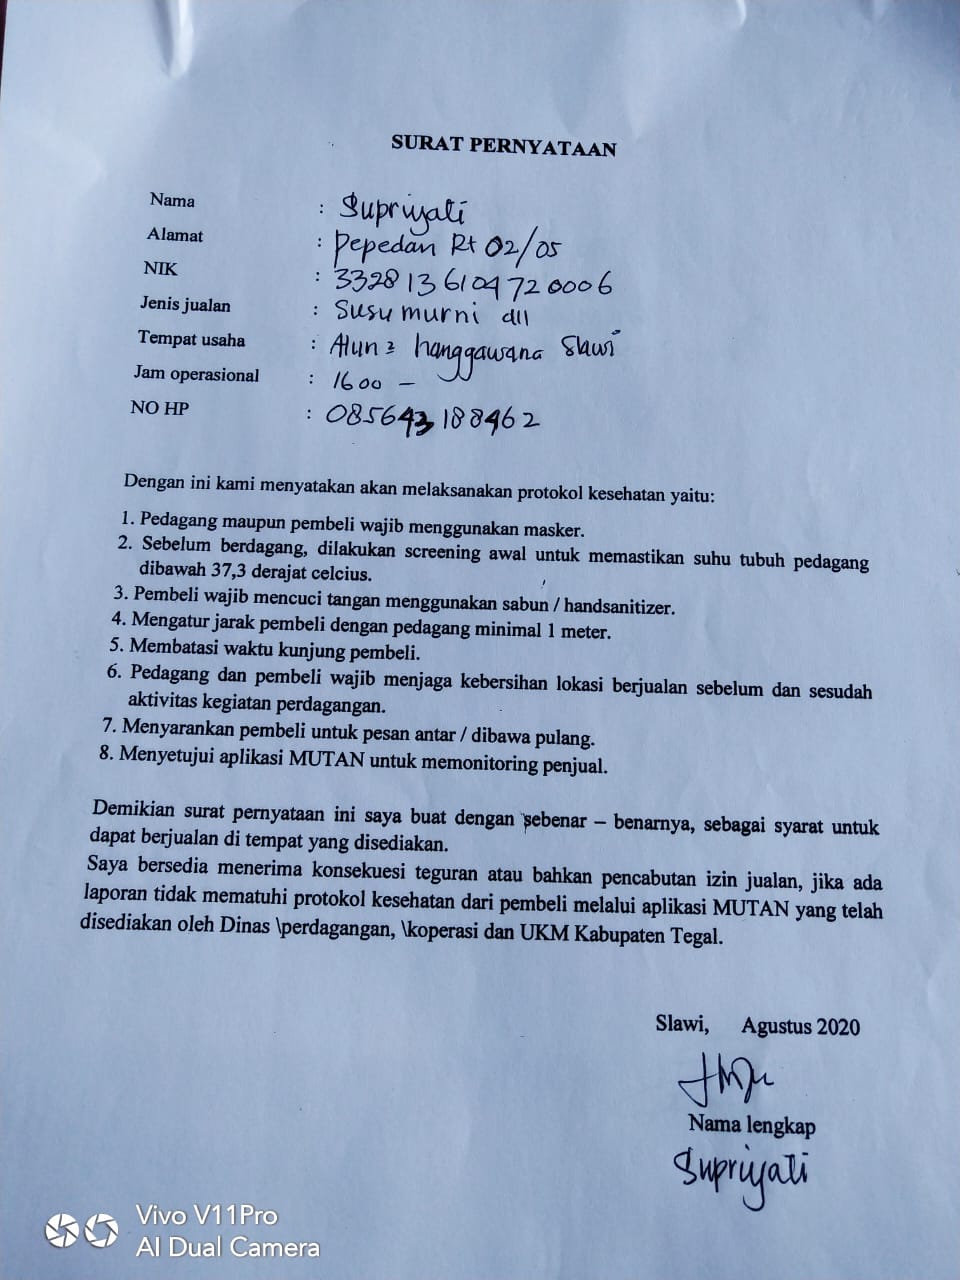 SURAT PERNYATAAN
Nama : Supriyati
Alamat : Pepedan Rt 02/05
NIK : 3328136104720006
Jenis jualan : Susu murni dll
Tempat usaha : Alun2 hanggawana Slawi
Jam operasional : 1600 –
NO HP : 085643188462
Dengan ini kami menyatakan akan melaksanakan protokol kesehatan yaitu:
1. Pedagang maupun pembeli wajib menggunakan masker.
2. Sebelum berdagang, dilakukan screening awal untuk memastikan suhu tubuh pedagang
dibawah 37,3 derajat celcius.
3. Pembeli wajib mencuci tangan menggunakan sabun / handsanitizer.
4. Mengatur jarak pembeli dengan pedagang minimal 1 meter.
5. Membatasi waktu kunjung pembeli.
6. Pedagang dan pembeli wajib menjaga kebersihan lokasi berjualan sebelum dan sesudah
aktivitas kegiatan perdagangan.
7. Menyarankan pembeli untuk pesan antar / dibawa pulang.
8. Menyetujui aplikasi MUTAN untuk memonitoring penjual.
Demikian surat pernyataan ini saya buat dengan sebenar – benarnya, sebagai syarat untuk
dapat berjualan di tempat yang disediakan.
Saya bersedia menerima konsekuesi teguran atau bahkan pencabutan izin jualan, jika ada
laporan tidak mematuhi protokol kesehatan dari pembeli melalui aplikasi MUTAN yang telah
disediakan oleh Dinas \perdagangan, \koperasi dan UKM Kabupaten Tegal.
Slawi, Agustus 2020
Nama lengkap
Supriyati
Vivo V11Pro
AI Dual Camera